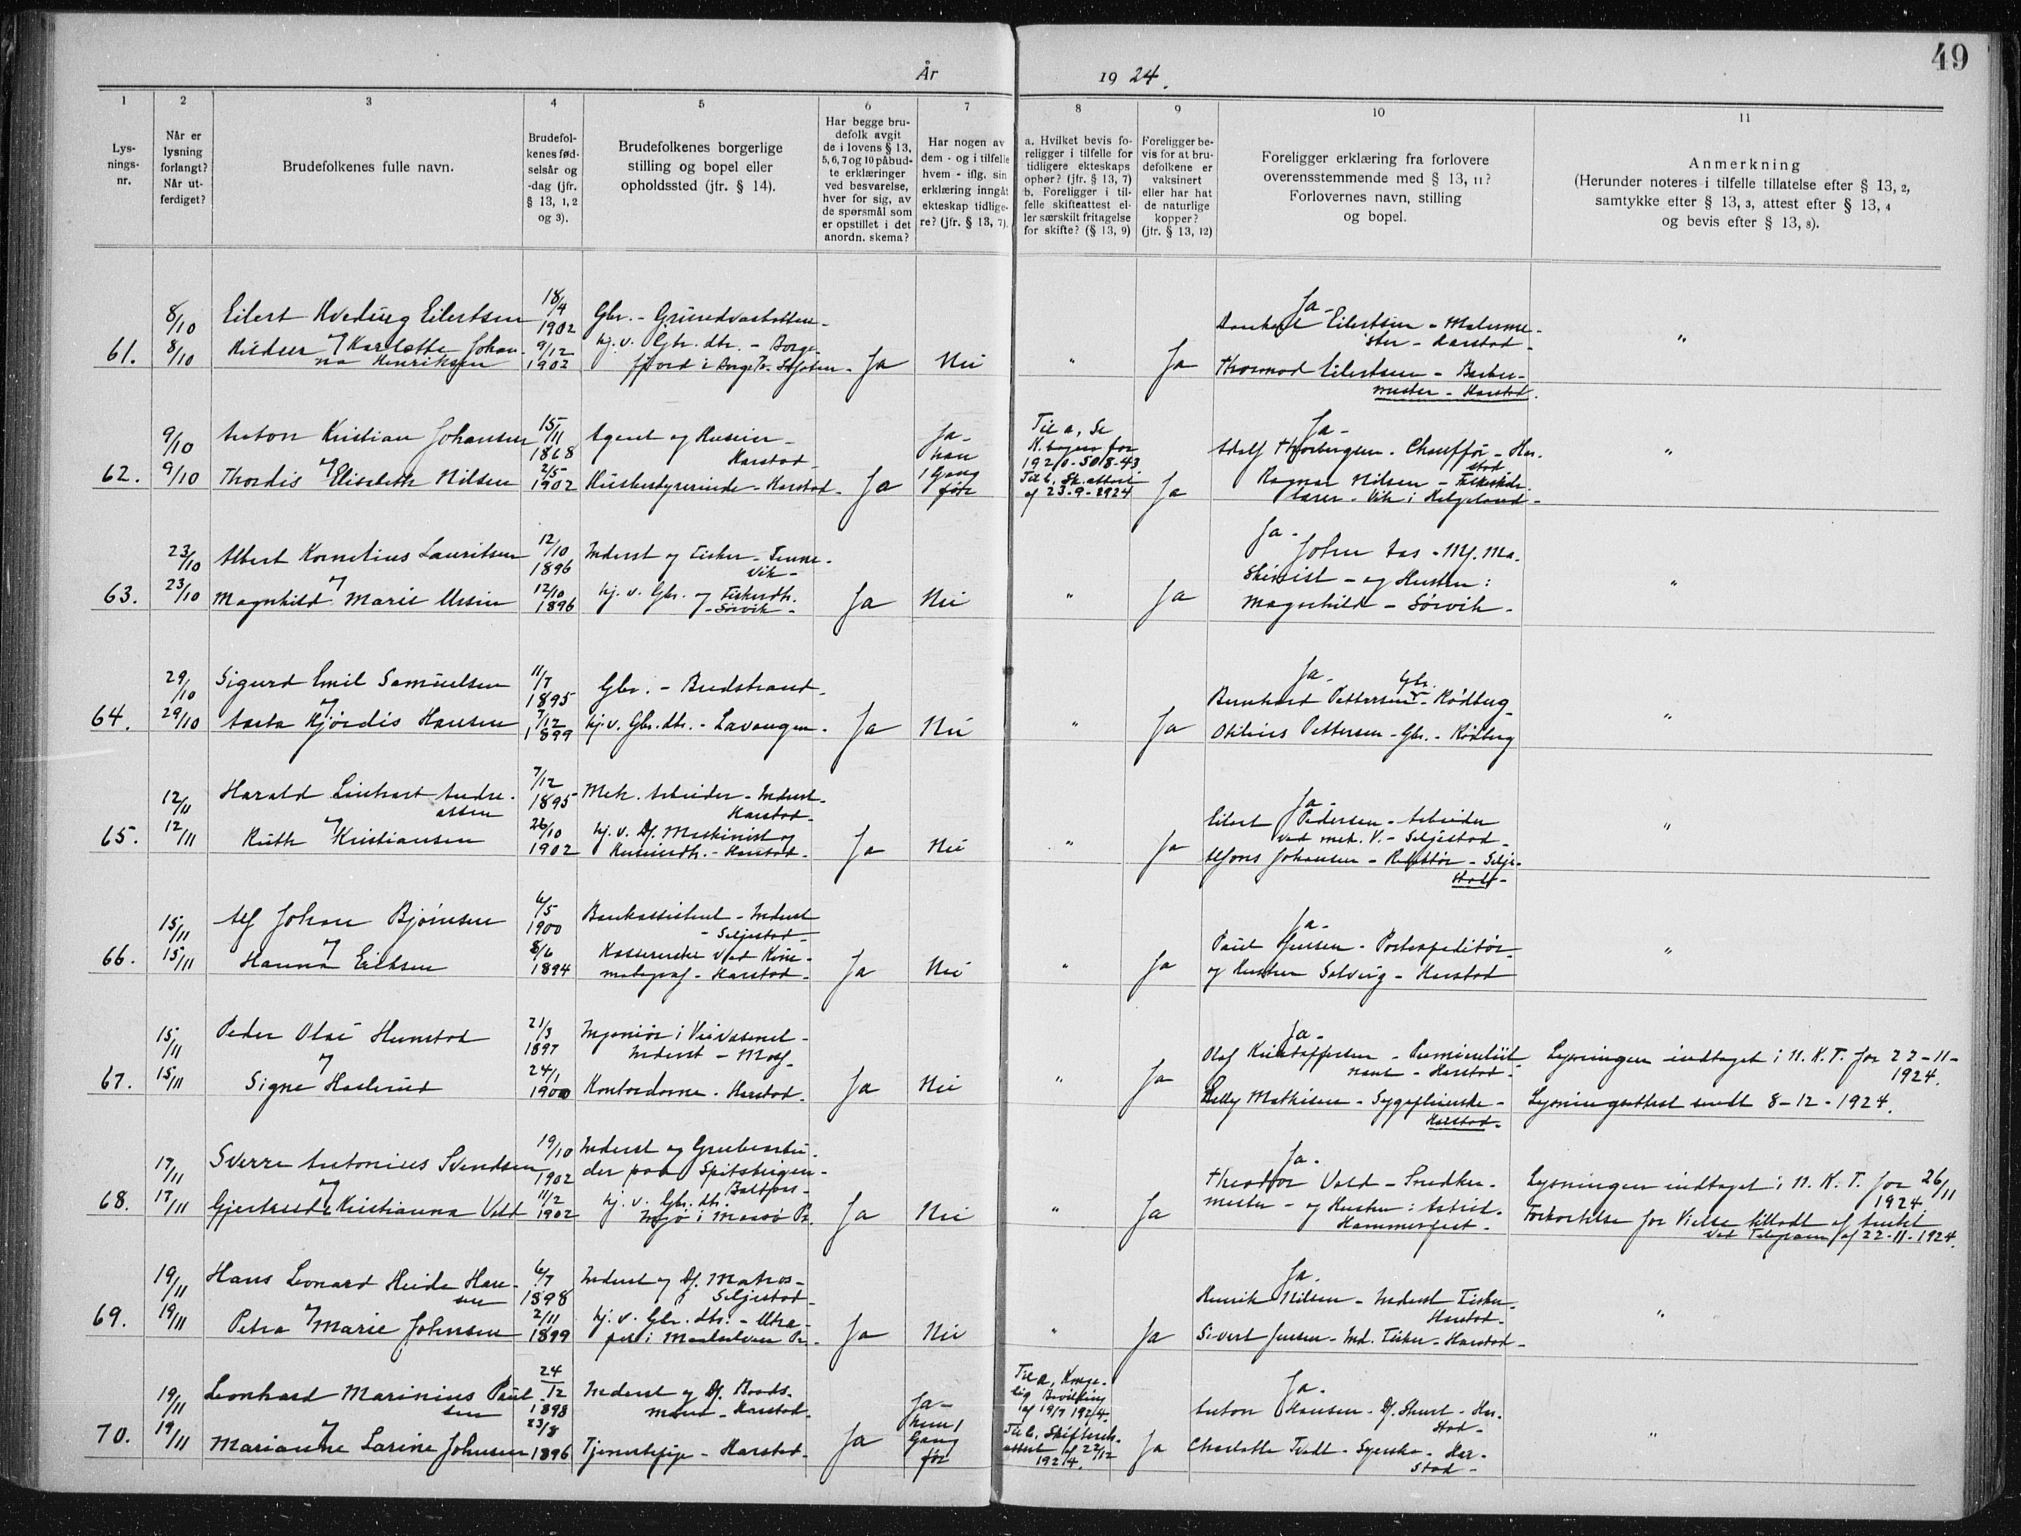 49
År 1924.
1 2 3 4 5 6 7 8 9 10 11
Lys-
nings-
nr.
Når er
lysning
forlangt?
Når ut-
ferdiget?
Brudefolkenes fulle navn.
Brudefol-
kenes fød-
selsår og
-dag (jfr.
§ 13, 1, 2
og 3).
Brudefolkenes borgerlige
stilling og bopel eller
opholdssted (jfr. § 14).
Har begge bru-
defolk avgit
de i lovens § 13,
5, 6, 7 og 10 påbud-
te erklæringer
ved besvarelse,
hver for sig, av
de spørsmål som
er opstillet i det
anordn. skema?
Har nogen av
dem - og i tilfelle
hvem - iflg. sin
erklæring inngåt
ekteskap tidlige-
re? (jfr. § 13, 7).
a. Hvilket bevis fo-
religger i tilfelle for
tidligere ekteskaps
ophør? (jfr. § 13, 7)
b. Foreligger i til-
felle skifteattest el-
ler særskilt fritagelse
for skifte? (§ 13, 9)
Foreligger be-
vis for at bru-
defolkene er
vaksinert
eller har hat
de naturlige
kopper?
(jfr. § 13, 12)
Foreligger erklæring fra forlovere
overensstemmende med § 13, 11?
Forlovernes navn, stilling
og bopel.
Anmerkning
(Herunder noteres i tilfelle tillatelse efter § 13, 2,
samtykke efter § 13, 3, attest efter § 13, 4
og bevis efter § 13, 8).
61.
8/10
8/10
Eilert Eilertsen
7 Karlotte Johan-
na Henriksen
18/4
1902
9/12
1902
Gbr. -
hj. v. Gbr. dtr. - Borge-
fjord i
Ja
Nei
"
Ja
Ja -
Eilertsen - Malerme-
ster - Harstad -
Thormod Eilertsen - Barber-
mester - Harstad.
"
62.
9/10
9/10
Anton Kristian Johansen
7
Thordis Elisabeth Nilsen
15/11
1868
2/5
1902
Agent og Huseier -
Harstad -
Husbestyrerinde - Harstad -
Ja
Ja -
han
1 Gang
før
Til a, Se
K.bogen for
1920-50/8-43
Til b, Sk. attest
af 23-9-1924
Ja
Ja -
Adolf Thorbergsen - Chauffør - Har-
stad -
Ragnar Nilsen -
lærer - Vik i Helgeland -
"
63.
23/10
23/10
Albert Kornelius Lauritsen
7
Magnhild Marie
12/10
1896
12/10
1896
Inderst og Fisker - Tenne-
vik -
hj. v. Gbr. og Fiskerdtr.
- Sørvik -
Ja
Nei
"
Ja
Ja -
John Aas - Mf. Ma-
skinist - og Hustru:
Magnhild - Sørvik -
"
64.
29/10
29/10
Sigurd Emil Samuelsen
7
Aasta Hjørdis Hansen
11/7
1895
7/12
1899
Gbr. - Bredstrand -
hj. v. Gbr. dtr. - Lavangen -
Ja
Nei
"
Ja
Ja -
Gbr.
Bernhard Pettersen - Rødberg -
Otilius Pettersen - Gbr. - Rødberg
"
65.
12/11
12/11
Harald Linhart Andre-
assen
7
Ruth Kristiansen
7/12
1895
26/10
1902
Mek. Arbeider - Inderst -
Harstad -
hj. v. Df. Maskinist og
Huseierdtr. - Harstad -
Ja
Nei
"
Ja
Ja -
Eilert Pedersen - Arbeider
ved mek. V. - Seljestad -
Alfons Johansen - - Selje-
stad -
"
66.
15/11
15/11
Alf Johan Bjørnsen
7
Hanna Eriksen
6/5
1900
8/6
1894
Bankassistent - Inderst
- Seljestad -
Kassererske ved Kine-
matograf - Harstad -
Ja
Nei
"
Ja
Ja -
Paul Jensen - Postexpeditør
og Hustru Solveig - Harstad
"
67.
15/11
15/11
Peder Olai Hunstad
7
Signe Haslerud
21/3
1897
24/1
1900
Ingeniør i Veivæsenet -
Inderst - Moss -
Kontordame - Harstad -
Ja
Nei
"
Ja
Ja -
Olaf Kristoffersen - Premierløit
nant - Harstad -
Mathisen - Sygepleierske -
Harstad -
Lysningen indtaget i N. K. T. for 22-11-
1924.
Lysningsattest sendt 8-12-1924.
68.
17/11
17/11
Sverre Antonius Svendsen
7
Gjertrud Kristianna Vold
19/10
1902
11/2
1902
Inderst og Grubearbei-
der paa Spitsbergen -
hj. v. Gbr. dtr.
Ingø i Maasø Pr.
Ja
Nei
"
Ja
Ja -
Theodor Vold - Snedker-
mester - og Hustru: Astrid -
Hammerfest -
Lysningen indtaget i N. K. T. for 26/11
1924.
Forkortelse for Vielse tilladt af Amtet
ved Telegram af 22-11-1924.
69.
19/11
19/11
Hans Leonard Heide Han-
sen
7
Petra Marie Johnsen
6/7
1898
2/11
1899
Inderst og Df. Matros -
Seljestad -
hj. v. Gbr. dtr. -
i Maalselven Pr.
Ja
Nei
"
Ja
Ja -
Henrik Nilsen - Inderst Fisker -
Harstad -
Sivert Jensen - Ind. Fisker - Harstad -
"
70.
19/11
19/11
Leonhard Marinius Paul-
sen
7
Marianne Larine Johnsen
24/12
1898
23/8
1896
Inderst og Df. Baads-
mand - Harstad -
Tjenestepige - Harstad -
Ja
Ja -
hun 1
Gang
før
Til a, Konge-
lig Bevilling
af 19/7 1924.
Til b, Skifteret-
attest af 22/12
1924.
Ja
Ja -
Anton Hansen - Df. Stuert - Har-
stad -
Charlotte Tvedt - Syerske - Har-
stad -
"